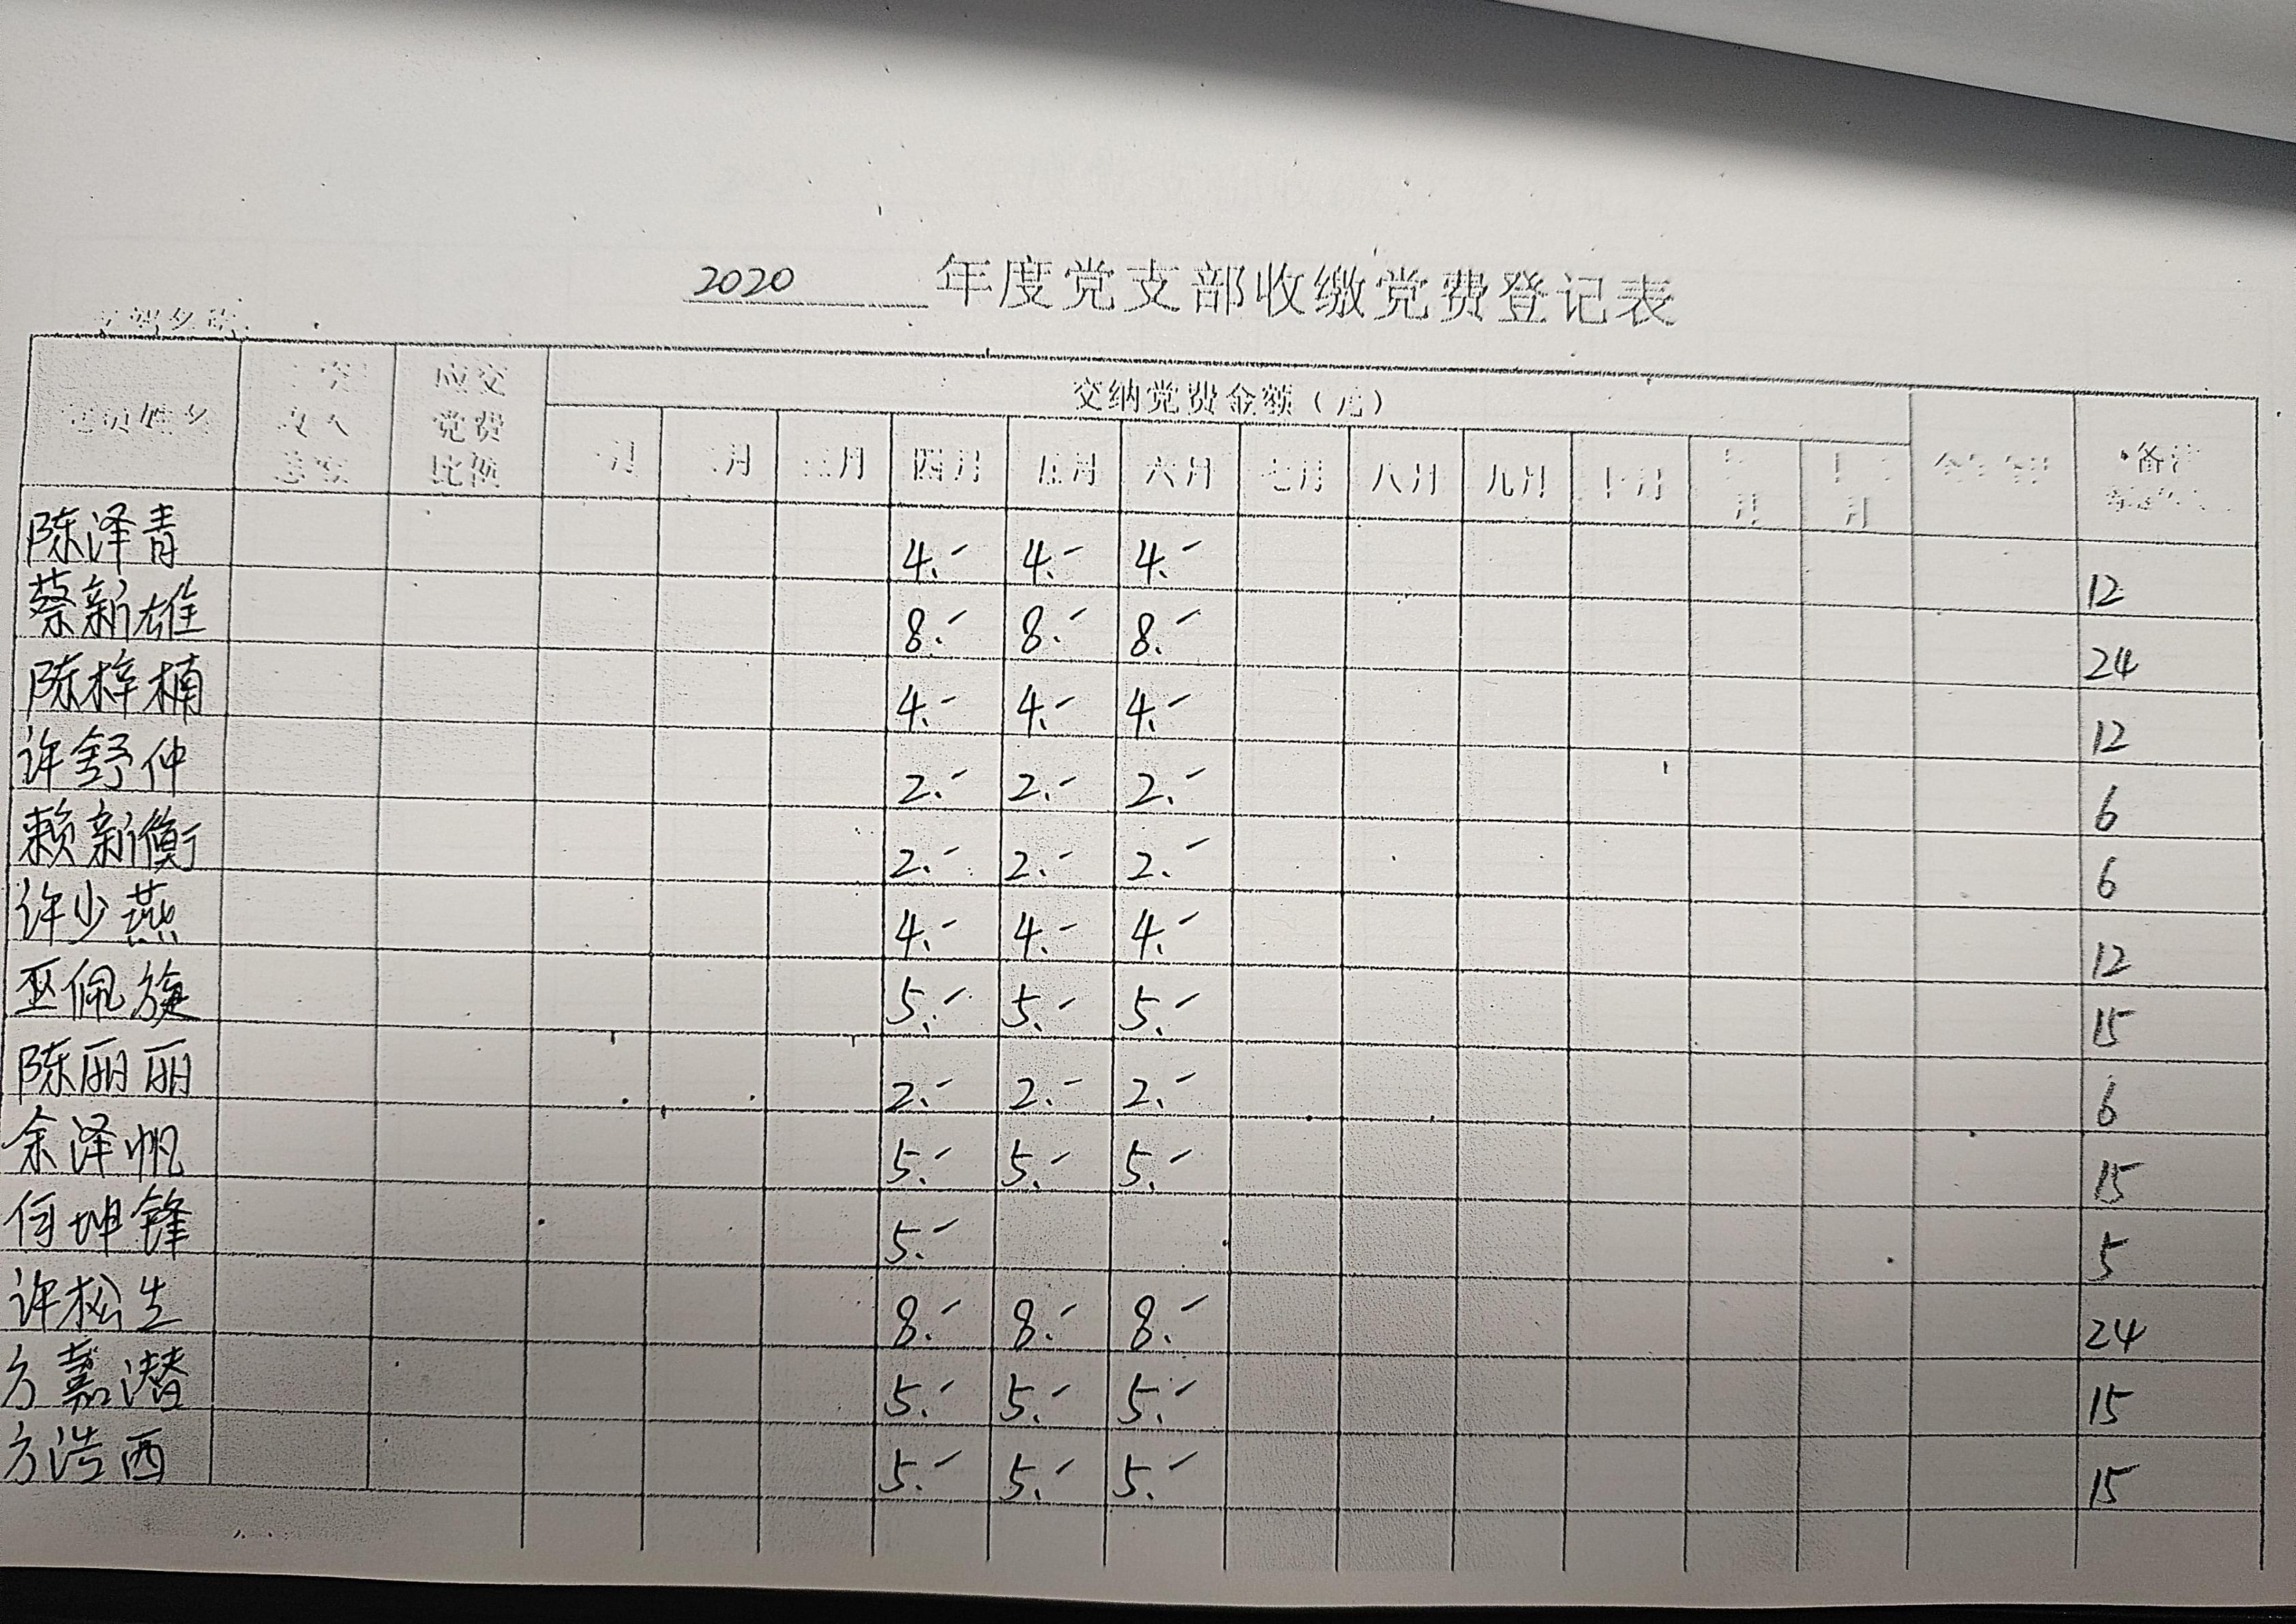 2020 年度党支部收缴党费登记表
党员姓名 收入 应交党费比例 交纳党费金额（元） 备注
一月 二月 三月 四月 五月 六月 七月 八月 九月 十月 月 月
陈泽青 4.- 4.- 4.- 12
蔡新雄 8.- 8.- 8.- 24
陈梓楠 4.- 4.- 4.- 12
许舒仲 2.- 2.- 2.- 6
赖新衡 2.- 2.- 2.- 6
许少燕 4.- 4.- 4.- 12
巫佩旋 5.- 5.- 5.- 15
陈丽丽 2.- 2.- 2.- 6
余泽帆 5.- 5.- 5.- 15
何坤锋 5.- 5
许松生 8.- 8.- 8.- 24
方嘉潜 5.- 5.- 5.- 15
方浩西 5.- 5.- 5.- 15